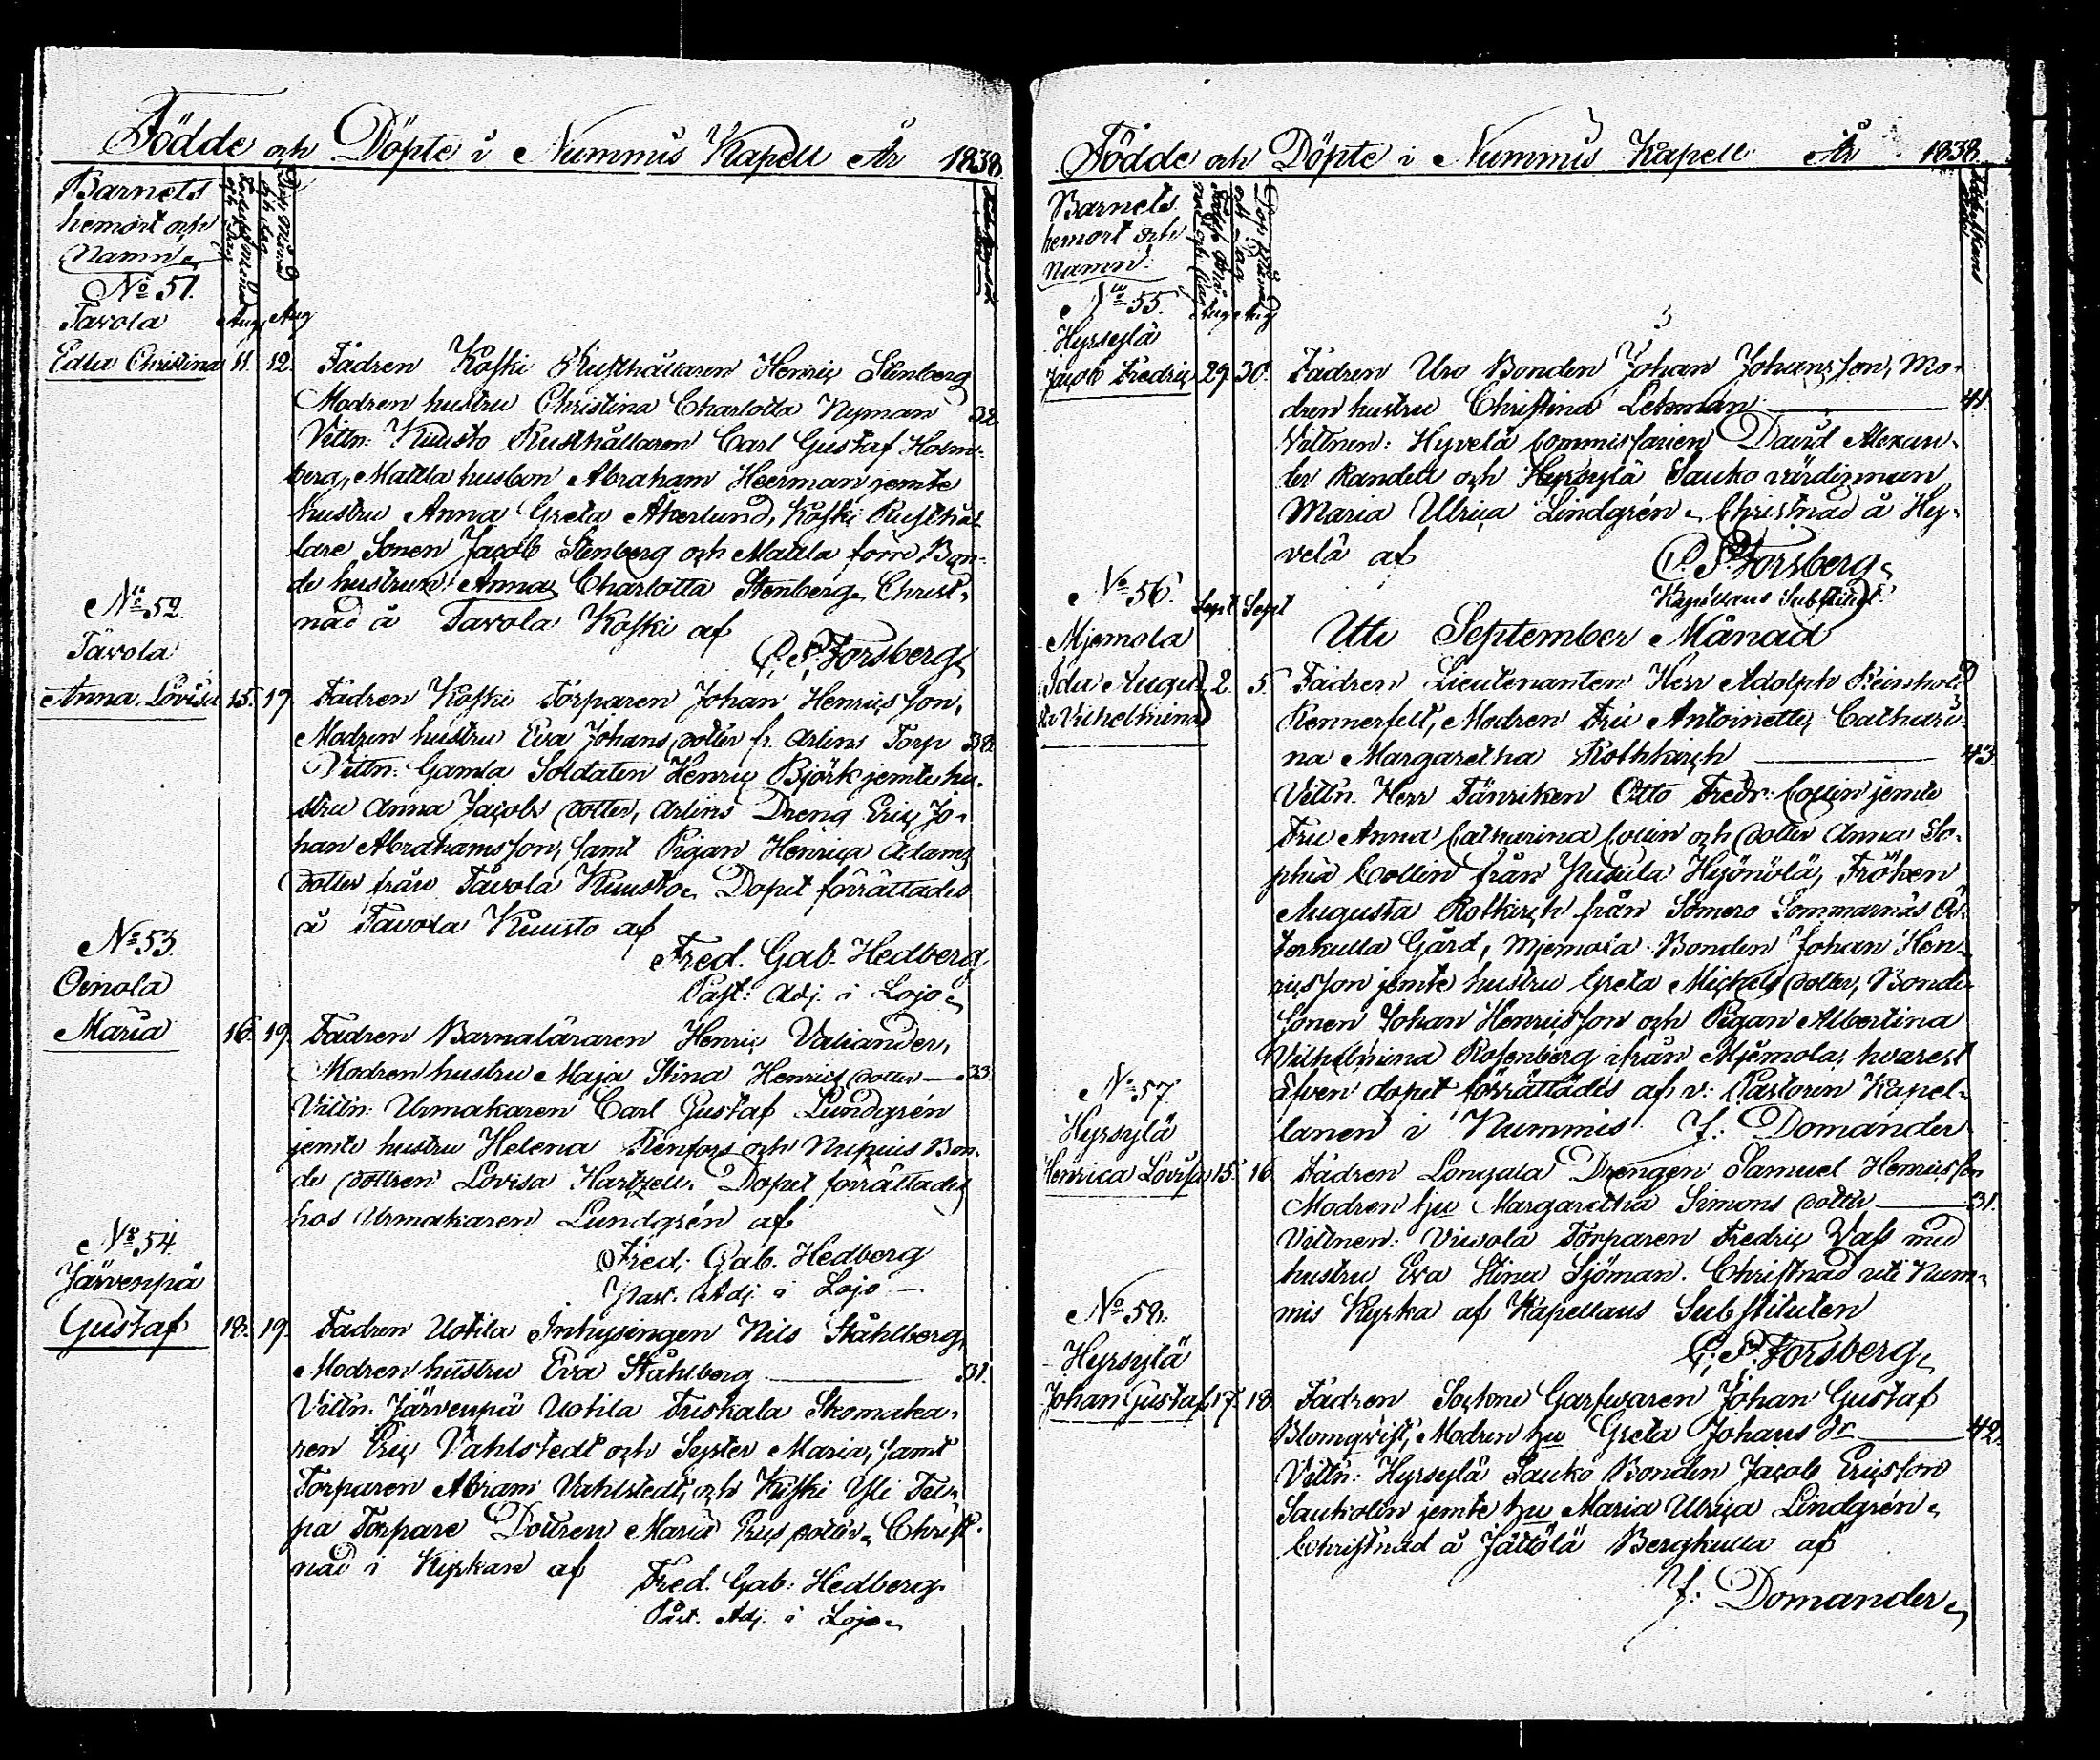 Födde och Döpte i Nummis Kapell År 1838.
Barnets
hemort och
Namn.
No 51.
Tavola Aug. Aug
Edla Christina 11. 12. Fadren Koski Rusthållaren Henric Stenberg
Modren hustru Christina Charlotta Nyman 32.
Vittn: Kuusto Rusthållaren Carl Gustaf Holm-
berg, Mattla husbon Abraham Heerman jemte
hustru Anna Greta Åkerlund, Koski Rusthål
lare Sonen Jacob Stenberg och Mattla förre Bon-
de hustrun Anna Charlotta Stenberg. Christ-
nad å Tavola Koski af
C. P. Forsberg.
No 52.
Tavola
Anna Lovisa 15. 17. Fadren Koski Torparen Johan Henricsson,
Modren hustru Eva Johans dotter fr. Arlins Torp 38.
Vittn: Gamla Soldaten Henric Björk jemte hu-
stru Anna Jacobs dotter, Arlins Dreng Eric Jo-
han Abrahamsson, samt Pigan Henrica Adams
dotter från Tavola Kuusto. Dopet förrättades
å Tavola Kuusto af
Fred. Gab. Hedberg
Past: Adj. i Lojo.
No 53.
Oinola
Maria 16. 19. Fadren Barnaläraren Henric Valiander,
Modren hustru Maja Stina Henrics dotter 33
Vittn: Urmakaren Carl Gustaf Lundgrén
jemte hustru Helena Stenfors och Nupius Bon-
de dottren Lovisa Hartzell. Dopet förrättades
hos Urmakaren Lundgrén af
Fred. Gab. Hedberg
Past. Adj. i Lojo
No 54.
Järvenpä
Gustaf 18. 19. Fadren Uotila Inhysingen Nils Ståhlberg,
Modren hustru Eva Ståhlberg 31.
Vittn. Järvenpä Uotila Friskala Skomaka-
ren Eric Vahlstedt och Syster Maria, samt
Torparen Abram Vahlstedt, och Kiski Yli
pa Torpare Dottren Maria Erics dotter. Christ-
nad i Kyrkan af
Fred. Gab: Hedberg.
Past. Adj. i Lojo.
Födde och Döpte i Nummis Kapell År 1838.
Barnets
hemort och
Namn.
No 55.
Hyrsylä Aug Aug
Jacob Fredric 29. 30. Fadren Uro Bonden Johan Johansson, Mo-
dren hustru Christina Lekman 41.
Vittnen: Hyvelä Commissarien David Alexan-
der Randell och Hyrsylä Sauko värdinnan
Maria Ulrica Lindgrén. Christnad å Hy-
velä af
C. P. Forsberg.
Kapellans Substitut.
No 56. Sept Sept
Uti September Månad
Mjemola
Ida Augus 2. 5. Fadren Lieutenanten Herr Adolph Reinhold
ta Vilhelmina Rennerfelt, Modren Fru Antoinette Cathari-
na Margaretha Rothkirch 43
Vittn. Herr Fänriken Otto Fredr: Collin jemte
Fru Anna Catharina Collin och dotter Anna So-
phia Collin från Pusula Hyönölä, Fröken
Augusta Rotkirch från Somero Sommarnäs Ös-
terkulla Gård, Mjemola Bonden Johan Hen-
ricsson jemte hustru Greta Michels dotter, Bonde
sonen Johan Henricsson och Pigan Albertina
Vilhelmina Rosenberg ifrån Mjemola, hvarest
äfven dopet förrättades af v: Pastoren Kapel-
lanen i Nummis J: Domander
No 57.
Hyrsylä
Henrica Lovisa 15. 16. Fadren Drengen Samuel Henricsson
Modren hu Margaretha Simons dotter 31.
Vittnen: Viwola Torparen Fredric Vass med
hustru Eva Stina Sjöman. Christnad uti Num-
mis Kyrka af Kapellans Substituten
C. P. Forsberg.
No 58.
Hyrsylä
Johan Gustaf 17. 18. Fadren Sockne Garfwaren Johan Gustaf
Blomqwist, Modren hu Greta Johans dr 42.
Vittn: Hyrsylä Sauko Bonden Jacob Ericsson
Saukolin jemte hu Maria Ulrica Lindgrén.
Christnad å Jättölä Bergkulla af
J: Domander.